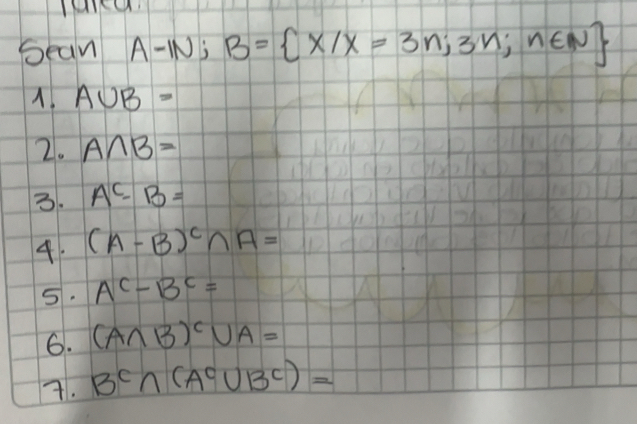 Sean A-IN; B = { X/X = 3n; 3n; n∈N}
1. A∪B =
2. A∩B =
3. Aᶜ- B =
4. (A - B)ᶜ ∩ A =
5. Aᶜ - Bᶜ =
6. (A∩B)ᶜ ∪ A =
7. Bᶜ ∩ (Aᶜ∪Bᶜ) =